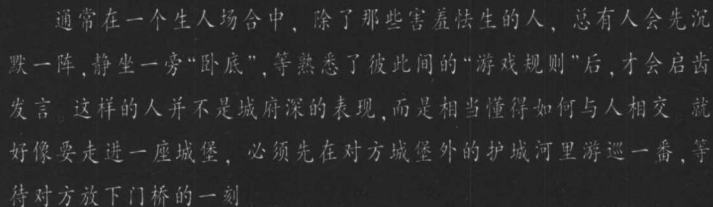 通常在一个生人场合中，除了那些害羞怯生的人，总有人会先沉
默一阵，静坐一旁“卧底”，等熟悉了彼此间的“游戏规则”后，才会启齿
发言。这样的人并不是城府深的表现，而是相当懂得如何与人相交 就
好像要走进一座城堡，必须先在对方城堡外的护城河里游巡一番，等
待对方放下门桥的一刻